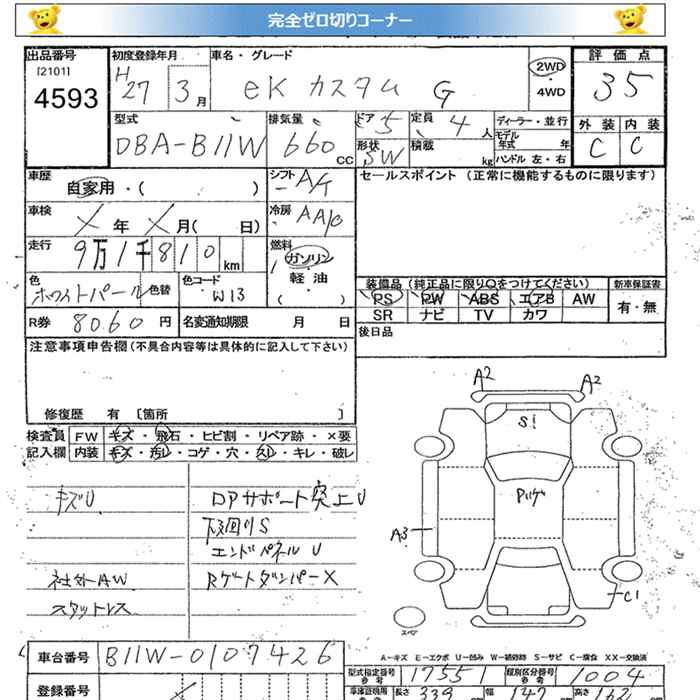 完全ゼロ切りコーナー
出品番号 初度登録年月 車名・グレード 評価点
[2101] H27 3月 eKカスタム G 2WD・4WD 35
4593
型式 排気量 ドア 5 定員 4人 ディーラー・並行 外装 内装
DBA-B11W 660CC 形状 SW 積載 kg モデル年式 年 C C
ハンドル 左・右
車歴 自家用・( ) シフト A/T セールスポイント (正常に機能するものに限ります)
車検 X年X月( 日) 冷房 AAC
走行 9万1千810km 燃料 ガソリン・軽・油( )
色 ホワイトパール 色替 色コード W13 装備品 (純正品に限り○をつけてください) 新車保証書
PS PW ABS エアB AW 有・無
SR ナビ TV カワ
R券 8060円 名変通知期限 月 日 後日品
注意事項申告欄(不具合内容等は具体的に記入して下さい)
修復歴 有 〔箇所 〕
検査員 FW キズ・飛石・ヒビ割・リペア跡・×要
記入欄 内装 キズ・汚レ・コゲ・穴・スレ・キレ・破レ
キズU ロアサポート突上U
下廻りS
エンドパネルU
社外AW Rゲートダンパー×
スタットレス
A2 A2
S1
A3
C1
スペア
A−キズ E−エクボ U−凹み W−補修跡 S−サビ C−腐食 XX−交換済
車台番号 B11W-0107426 型式指定番号 参考 17551 類別区分番号 参考 1004
登録番号 X 車庫証明用 参考 長さ 339 幅 147 高さ 162